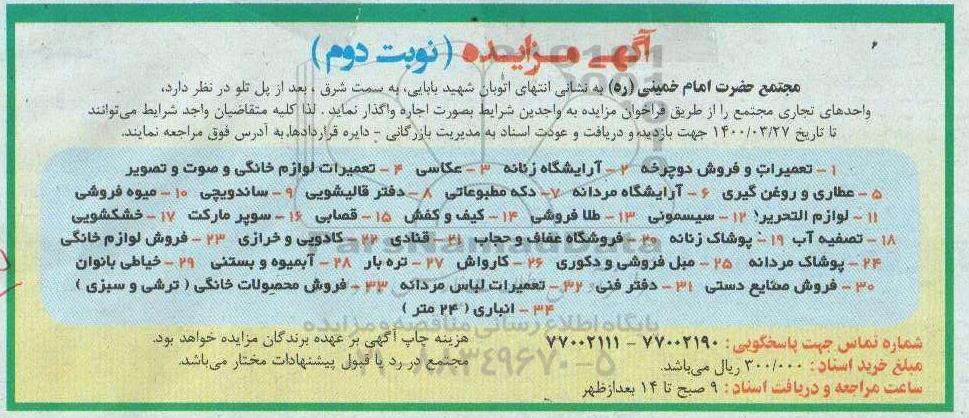 آگهی مزایده (نوبت دوم)
مجتمع حضرت امام خمینی (ره) به نشانی انتهای اتوبان شهید بابایی، به سمت شرق ، بعد از پل تلو در نظر دارد،
واحدهای تجاری مجتمع را از طریق فراخوان مزایده به واجدین شرایط بصورت اجاره واگذار نماید . لذا کلیه متقاضیان واجد شرایط می‌توانند
تا تاریخ ۱۴۰۰/۰۳/۲۷ جهت بازدید و دریافت و عودت اسناد به مدیریت بازرگانی - دایره قراردادها به آدرس فوق مراجعه نمایند.
۱- تعمیرات و فروش دوچرخه ۲- آرایشگاه زنانه ۳- عکاسی ۴- تعمیرات لوازم خانگی و صوت و تصویر
۵- عطاری و روغن گیری ۶- آرایشگاه مردانه ۷- دکه مطبوعاتی ۸- دفتر قالیشویی ۹- ساندویچی ۱۰- میوه فروشی
۱۱- لوازم التحریر ۱۲- سیسمونی ۱۳- طلا فروشی ۱۴- کیف و کفش ۱۵- قصابی ۱۶- سوپر مارکت ۱۷- خشکشویی
۱۸- تصفیه آب ۱۹- پوشاک زنانه ۲۰- فروشگاه عفاف و حجاب ۲۱- قنادی ۲۲- کادویی و خرازی ۲۳- فروش لوازم خانگی
۲۴- پوشاک مردانه ۲۵- مبل فروشی و دکوری ۲۶- کارواش ۲۷- تره بار ۲۸- آبمیوه و بستنی ۲۹- خیاطی بانوان
۳۰- فروش صنایع دستی ۳۱- دفتر فنی ۳۲- تعمیرات لباس مردانه ۳۳- فروش محصولات خانگی ( ترشی و سبزی )
۳۴- انباری ( ۲۴ متر )
پایگاه اطلاع رسانی مناقصه و مزایده
شماره تماس جهت پاسخگویی : ۷۷۰۰۲۱۹۰ - ۷۷۰۰۲۱۱۱
مبلغ خرید اسناد : ۳۰۰/۰۰۰ ریال می‌باشد.
ساعت مراجعه و دریافت اسناد : ۹ صبح تا ۱۴ بعدازظهر
هزینه چاپ آگهی بر عهده برندگان مزایده خواهد بود.
مجتمع در رد یا قبول پیشنهادات مختار می‌باشد.
۸۸۳۴۹۶۷۰-۵